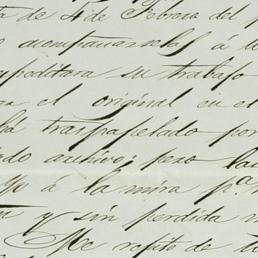 ta de 4 de Febrero del p
acompañarsela á u
peditara su trabajo
el original en el
ha traspapelado por
archivo; pero las
Yo á la mira pª
y sin perdida
Me repito de U